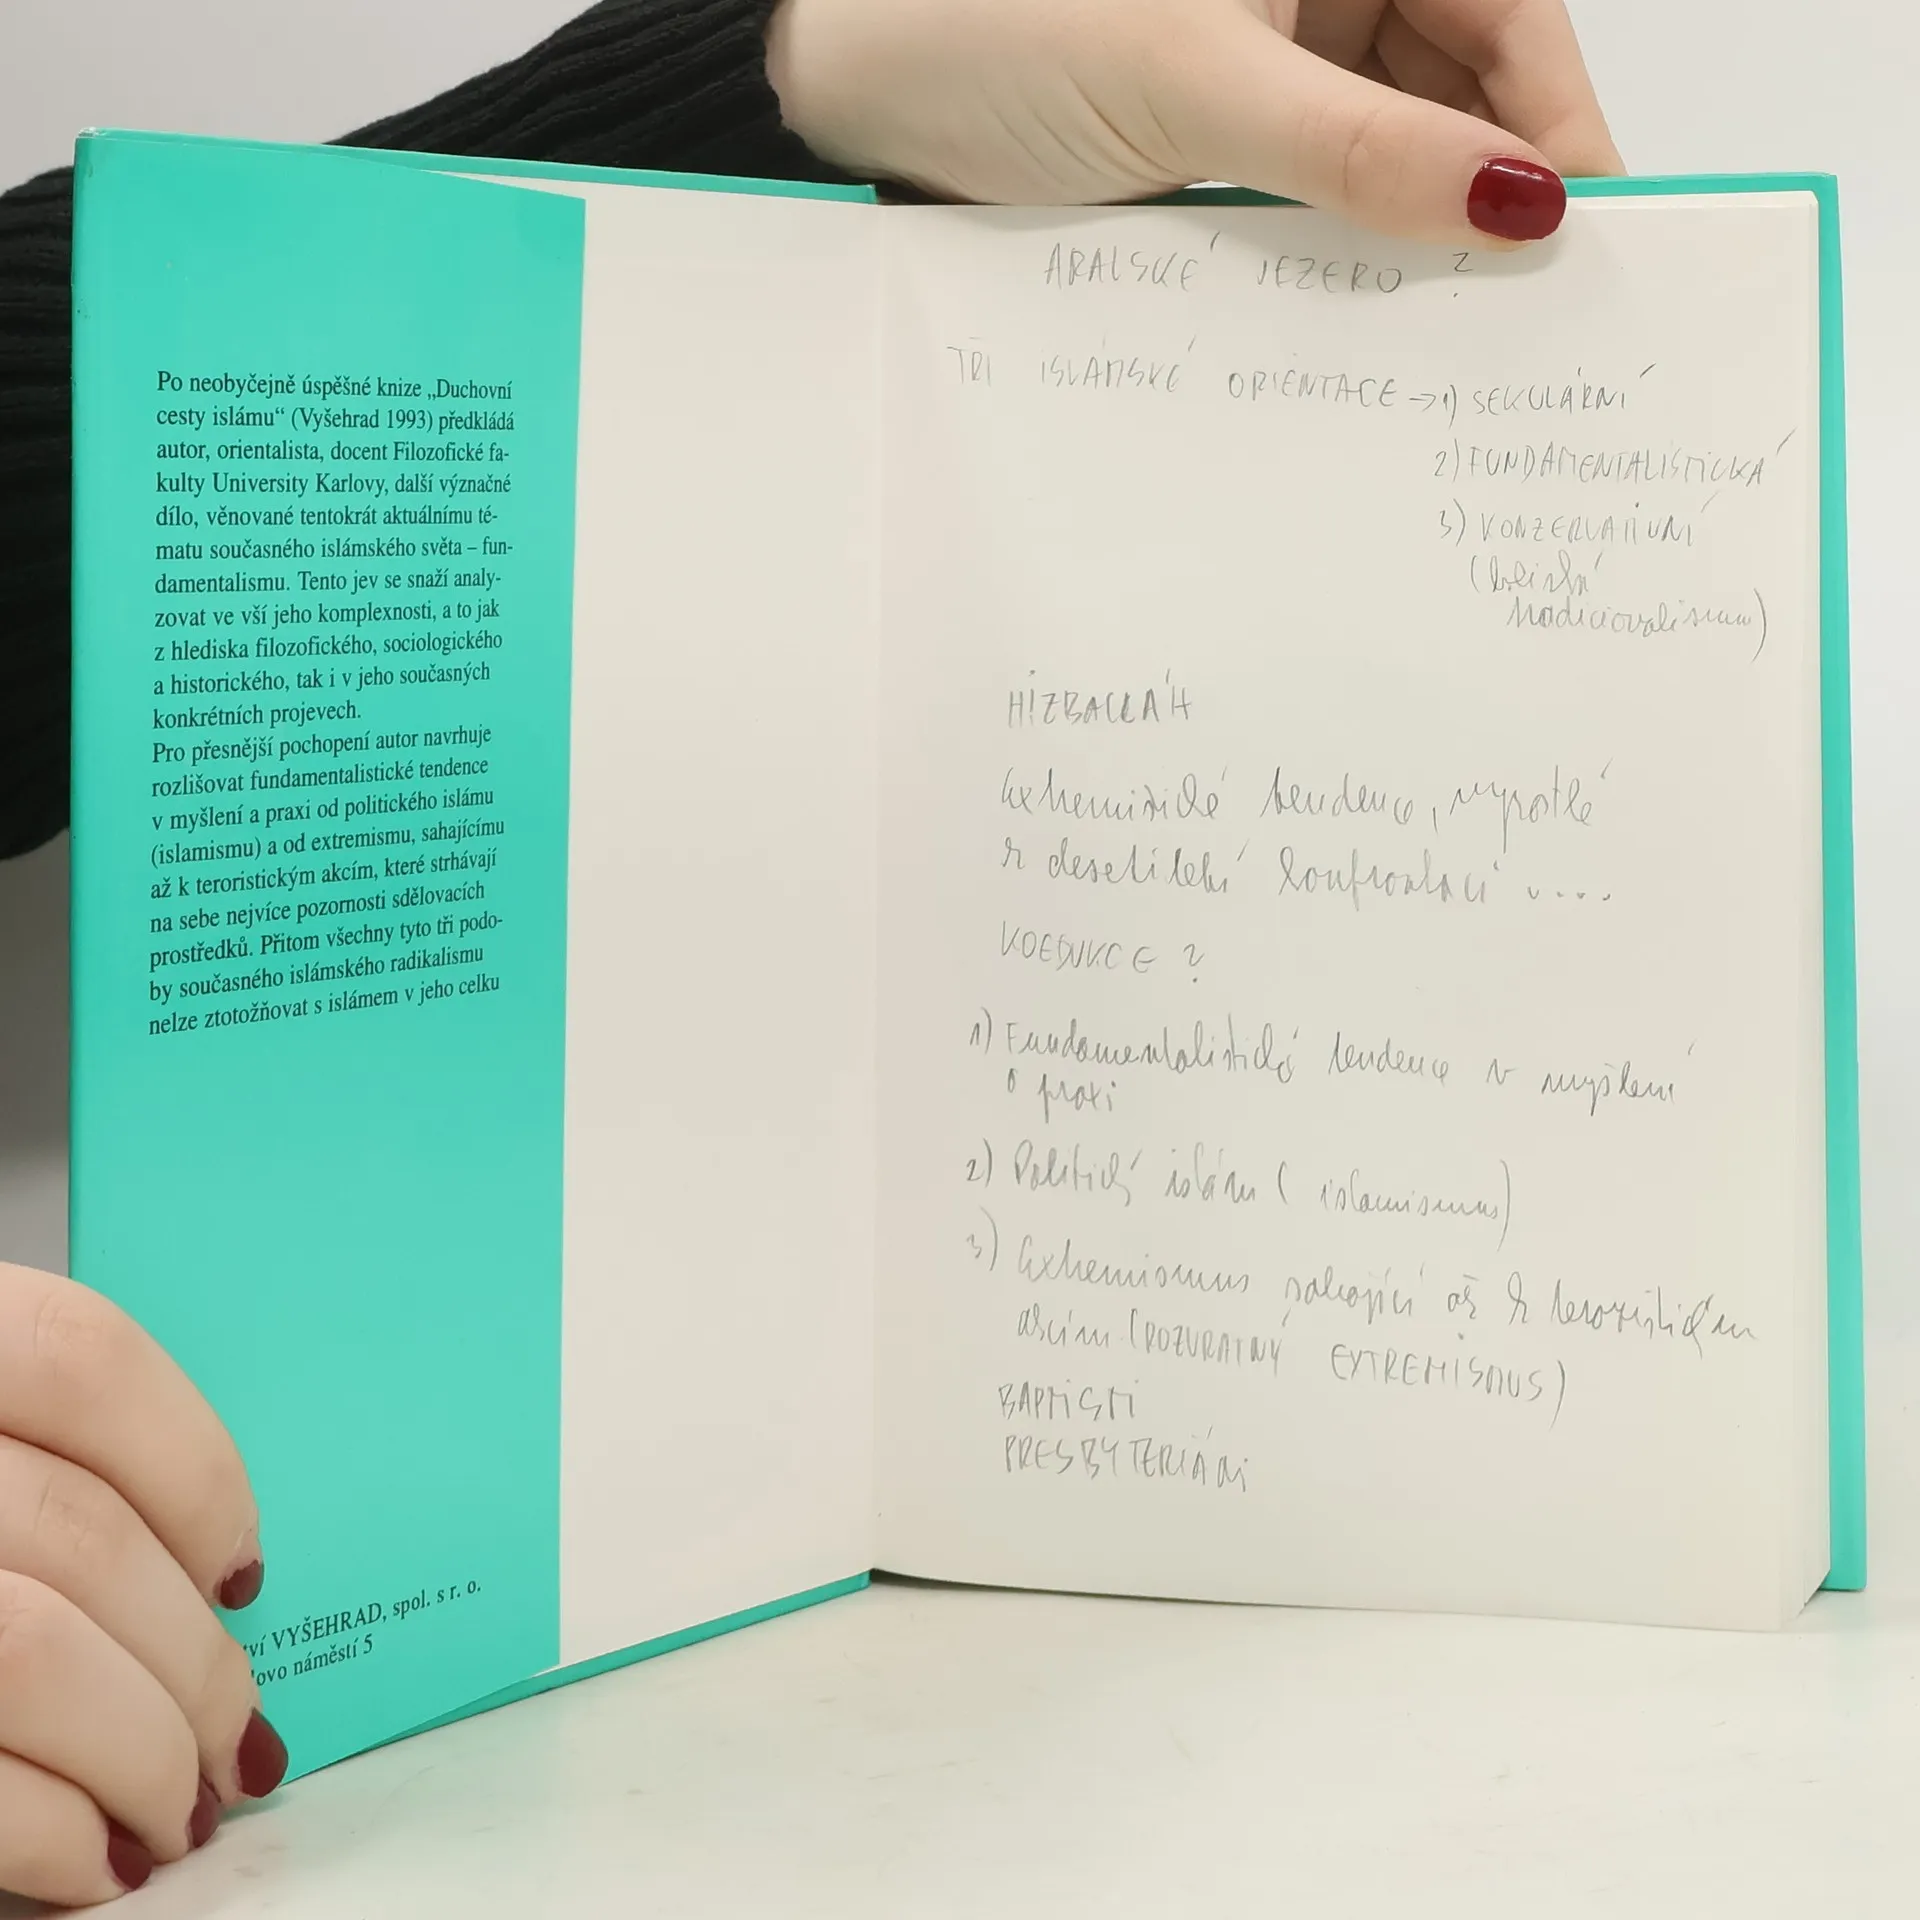 Po neobyčejně úspěšné knize „Duchovní
cesty islámu“ (Vyšehrad 1993) předkládá
autor, orientalista, docent Filozofické fa-
kulty University Karlovy, další význačné
dílo, věnované tentokrát aktuálnímu té-
matu současného islámského světa – fun-
damentalismu. Tento jev se snaží analy-
zovat ve vší jeho komplexnosti, a to jak
z hlediska filozofického, sociologického
a historického, tak i v jeho současných
konkrétních projevech.
Pro přesnější pochopení autor navrhuje
rozlišovat fundamentalistické tendence
v myšlení a praxi od politického islámu
(islamismu) a od extremismu, sahajícímu
až k teroristickým akcím, které strhávají
na sebe nejvíce pozornosti sdělovacích
prostředků. Přitom všechny tyto tři podo-
by současného islámského radikalismu
nelze ztotožňovat s islámem v jeho celku
tví VYŠEHRAD, spol. s r. o.
ovo náměstí 5
ARALSKÉ JEZERO ?
TŘI ISLÁMSKÉ ORIENTACE → 1) SEKULÁRNÍ
2) FUNDAMENTALISTICKÁ
3) KONZERVATIVNÍ
tradicionalismu)
HIZBALLÁH
Extremistické tendence, vyrostlé
z desetileté konfrontací ....
KOEDUKCE ?
1) Fundamentalistické tendence v myšlení
a praxi
2) Politický islám (islamismus)
3) Extremismus sahající až k teroristickým
akcím (ROZVRATNÝ EXTREMISMUS)
BAPTISTI
PRESBYTERIÁNI